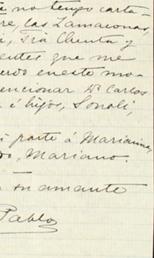 no tengo carta
re, las Zamaconas,
i, Tia Chucta y
entes que me
erdo en este mo-
encionar Dn Carlos
é hijos, Sonali,
i parte á Marianine,
do, Mariano.
tu amante
Pablo